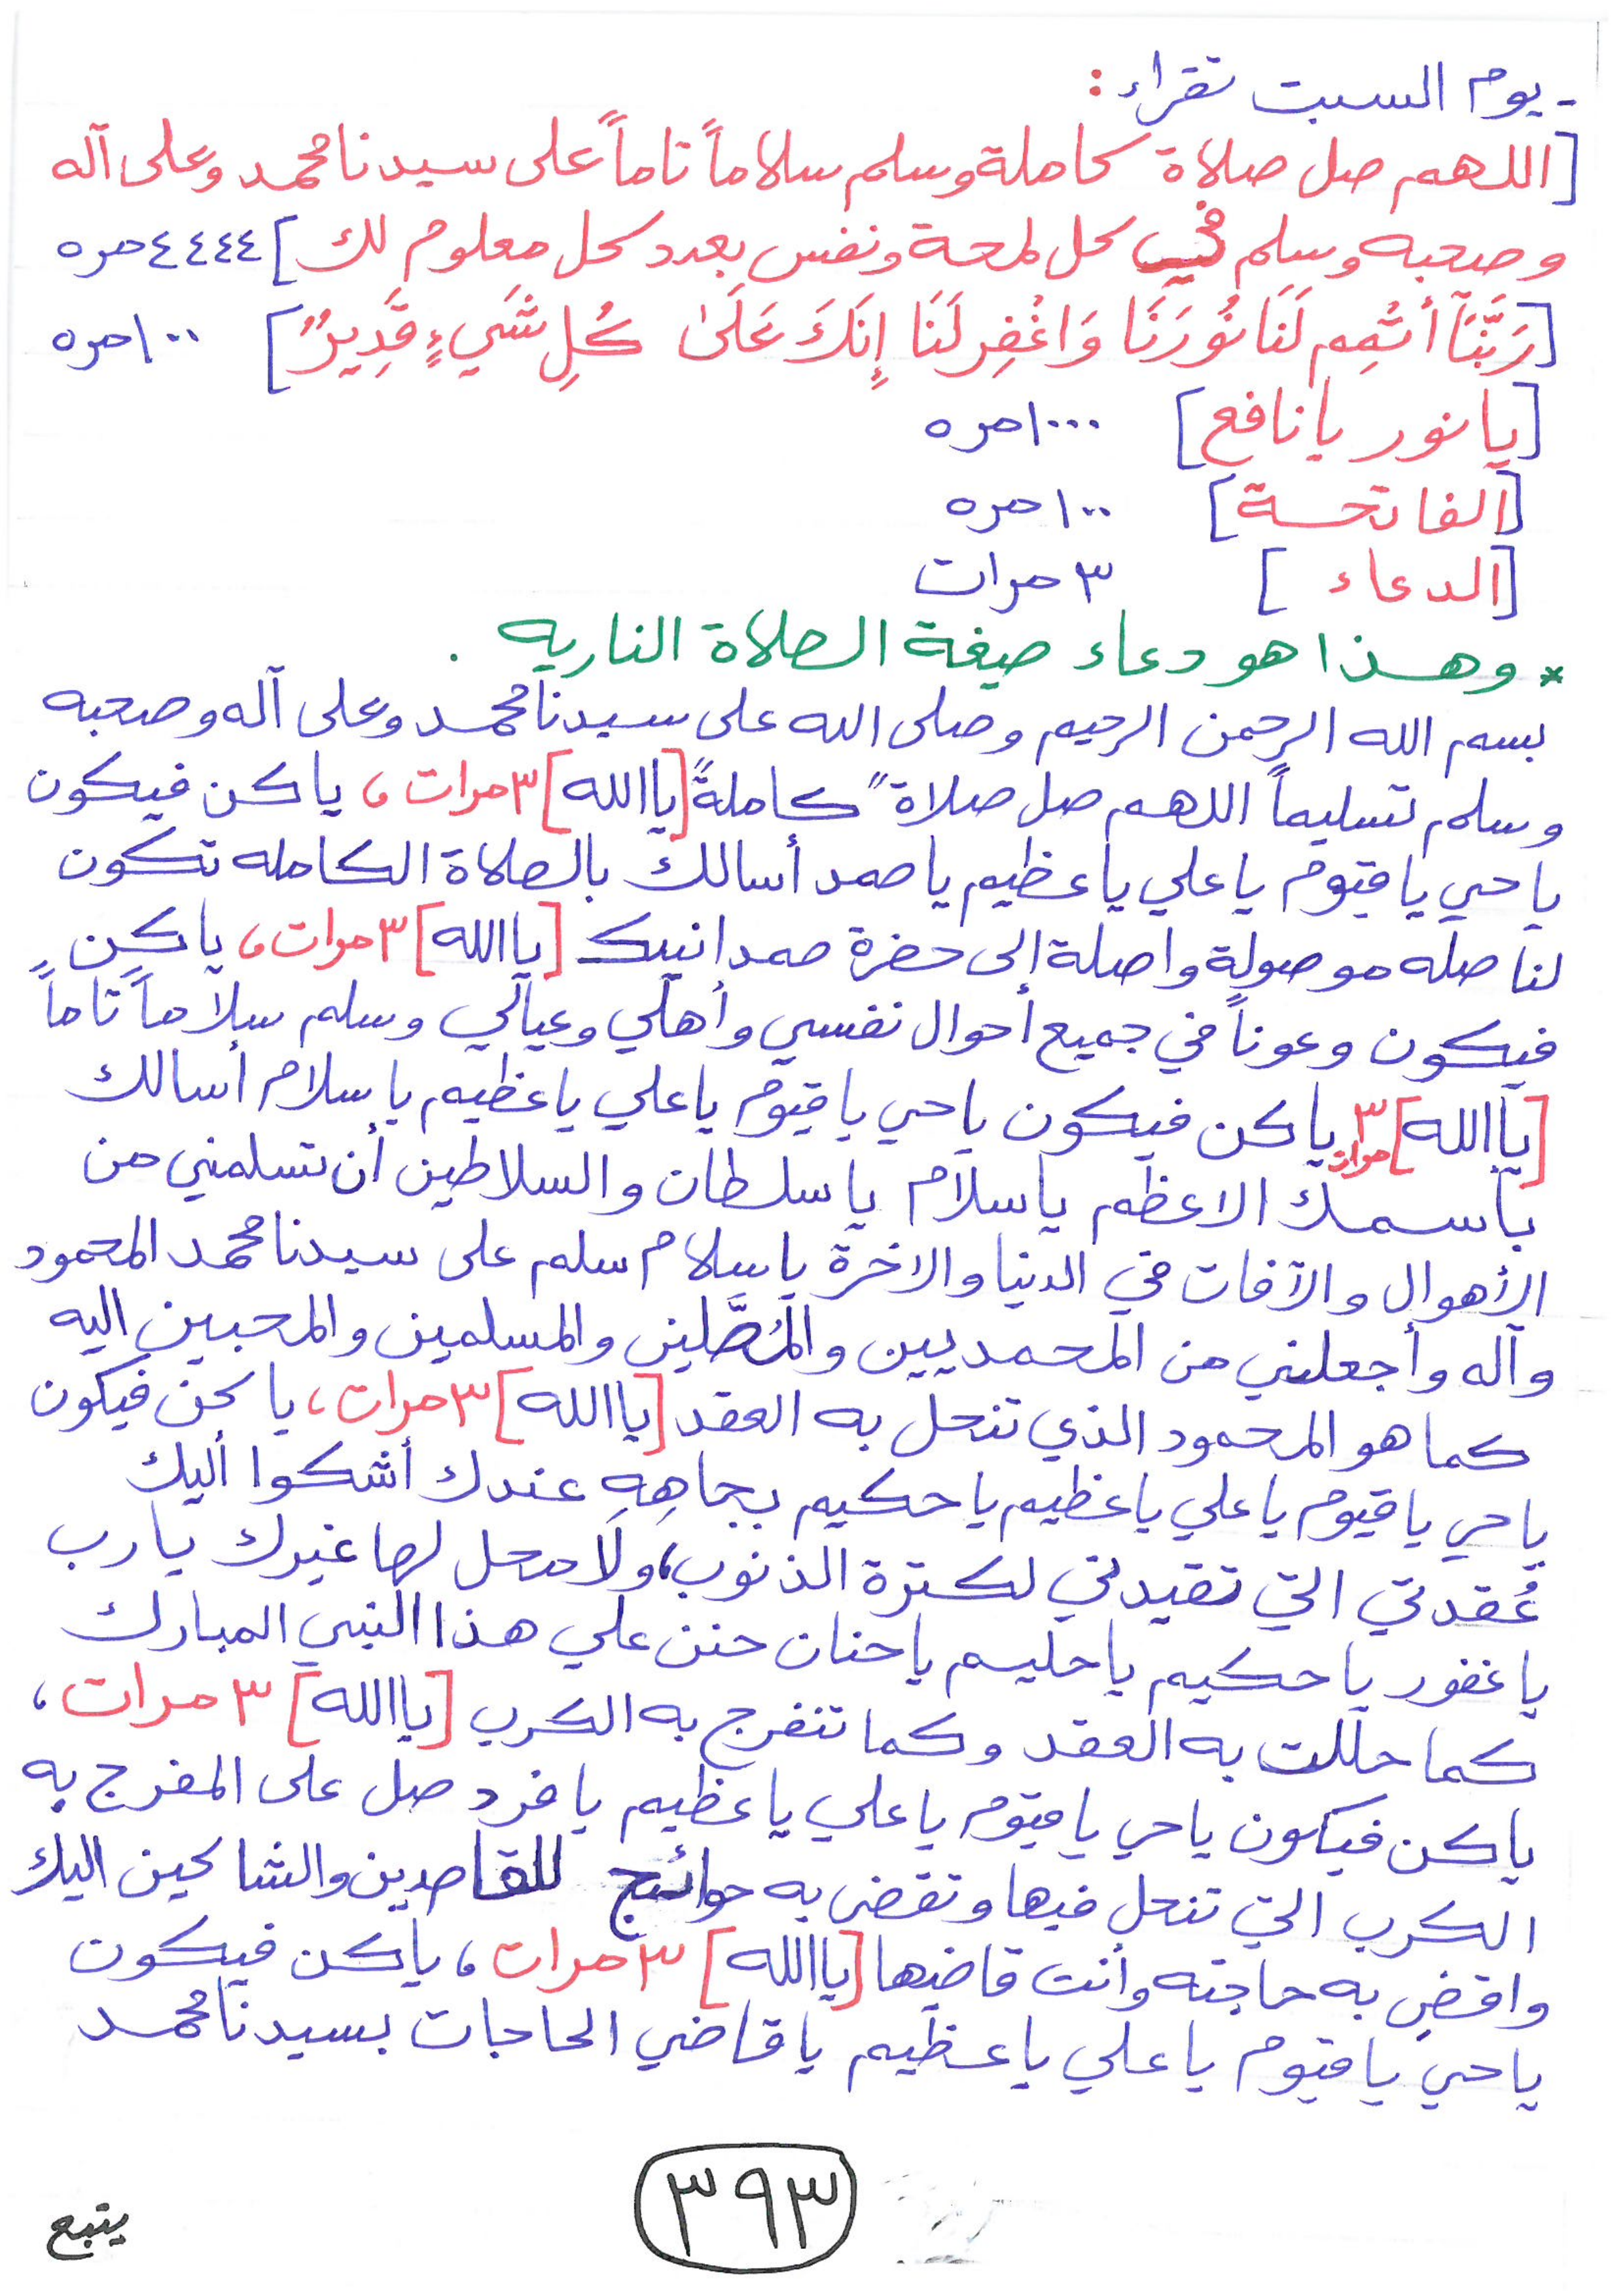 - يوم السبت تقراء :
[اللهم صل صلاة كاملة وسلم سلاماً تاماً على سيدنا محمد وعلى آله
وصحبه وسلم في كل لمحة ونفس بعدد كل معلوم لك] ٤٤٤٤ مره
[رَبَّنَآ أَتْمِم لَنَا نُورَنَا وَاغْفِر لَنَا إِنَكَ عَلَىٰ كُلِ شَيءٍ قَدِيرٌ] ١٠٠ مره
[يا نور يا نافع] ١٠٠٠ مره
[الفاتحة] ١٠٠ مره
[الدعاء] ٣ مرات
* وهذا هو دعاء صيغة الصلاة الناريه .
بسم الله الرحمن الرحيم وصلى الله على سيدنا محمد وعلى آله وصحبه
وسلم تسليماً اللهم صل صلاةً كاملةً [يا الله] ٣ مرات ، يا كن فيكون
يا حي يا قيوم يا علي يا عظيم يا صمد أسالك بالصلاة الكامله تكون
لنا صله موصولة واصلة إلى حضرة صمدانيك [يا الله] ٣ مرات ، يا كن
فيكون وعوناً في جميع أحوال نفسي وأهلي وعيالي وسلم سلاماً تاماً
[يا الله] ٣ مرات يا كن فيكون يا حي يا قيوم يا علي يا عظيم يا سلام أسالك
باسمك الاعظم يا سلام يا سلطان والسلاطين أن تسلمني من
الأهوال والآفات في الدنيا والاخرة يا سلام سلم على سيدنا محمد المحمود
وآله وأجعلني من المحمديين والمُصَّلين والمسلمين والمحبين اليه
كما هو المحمود الذي تنحل به العقد [يا الله] ٣ مرات ، يا كن فيكون
يا حي يا قيوم يا علي يا عظيم يا حكيم بجاهِهِ عندك أشكوا أليك
عُقدتي التي تقيدني لكثرة الذنوب ، ولا محل لها غيرك يا رب
يا غفور يا حكيم يا حليم يا حنان حنن علي هذا النبي المبارك
كما حللت به العقد وكما تنفرج به الكرب [يا الله] ٣ مرات ،
يا كن فيكون يا حي يا قيوم يا علي يا عظيم يا فرد صل على المفرج به
الكرب التي تنحل فيها وتقضى به حوائج للقاصدين والشاكين اليك
واقضِ به حاجته وأنت قاضيها [يا الله] ٣ مرات ، يا كن فيكون
يا حي يا قيوم يا علي يا عظيم يا قاضي الحاجات بسيدنا محمد
٣٩٣
يتبع